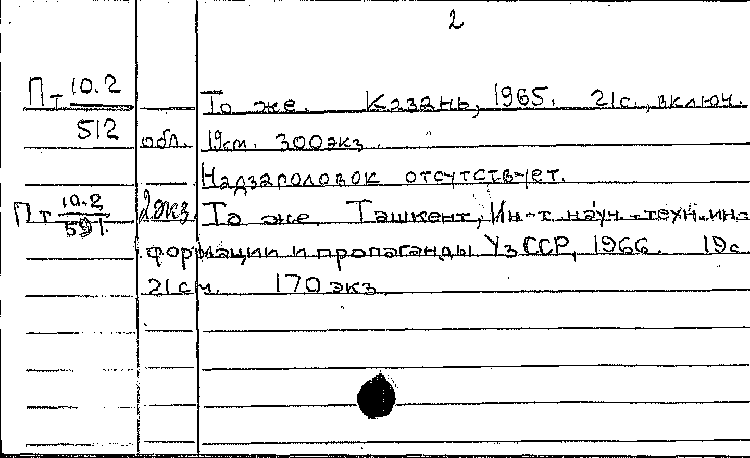 2
Пт 10.2
То же. Казань, 1965. 21с., включ.
512
обл. 19см. 300экз.
Надзаголовок отсутствует.
Пт 10.2 2экз. То же. Ташкент, Ин-т науч.-техн. ин-
591
формации и пропаганды УзССР, 1966. 19с.
21см. 170экз.